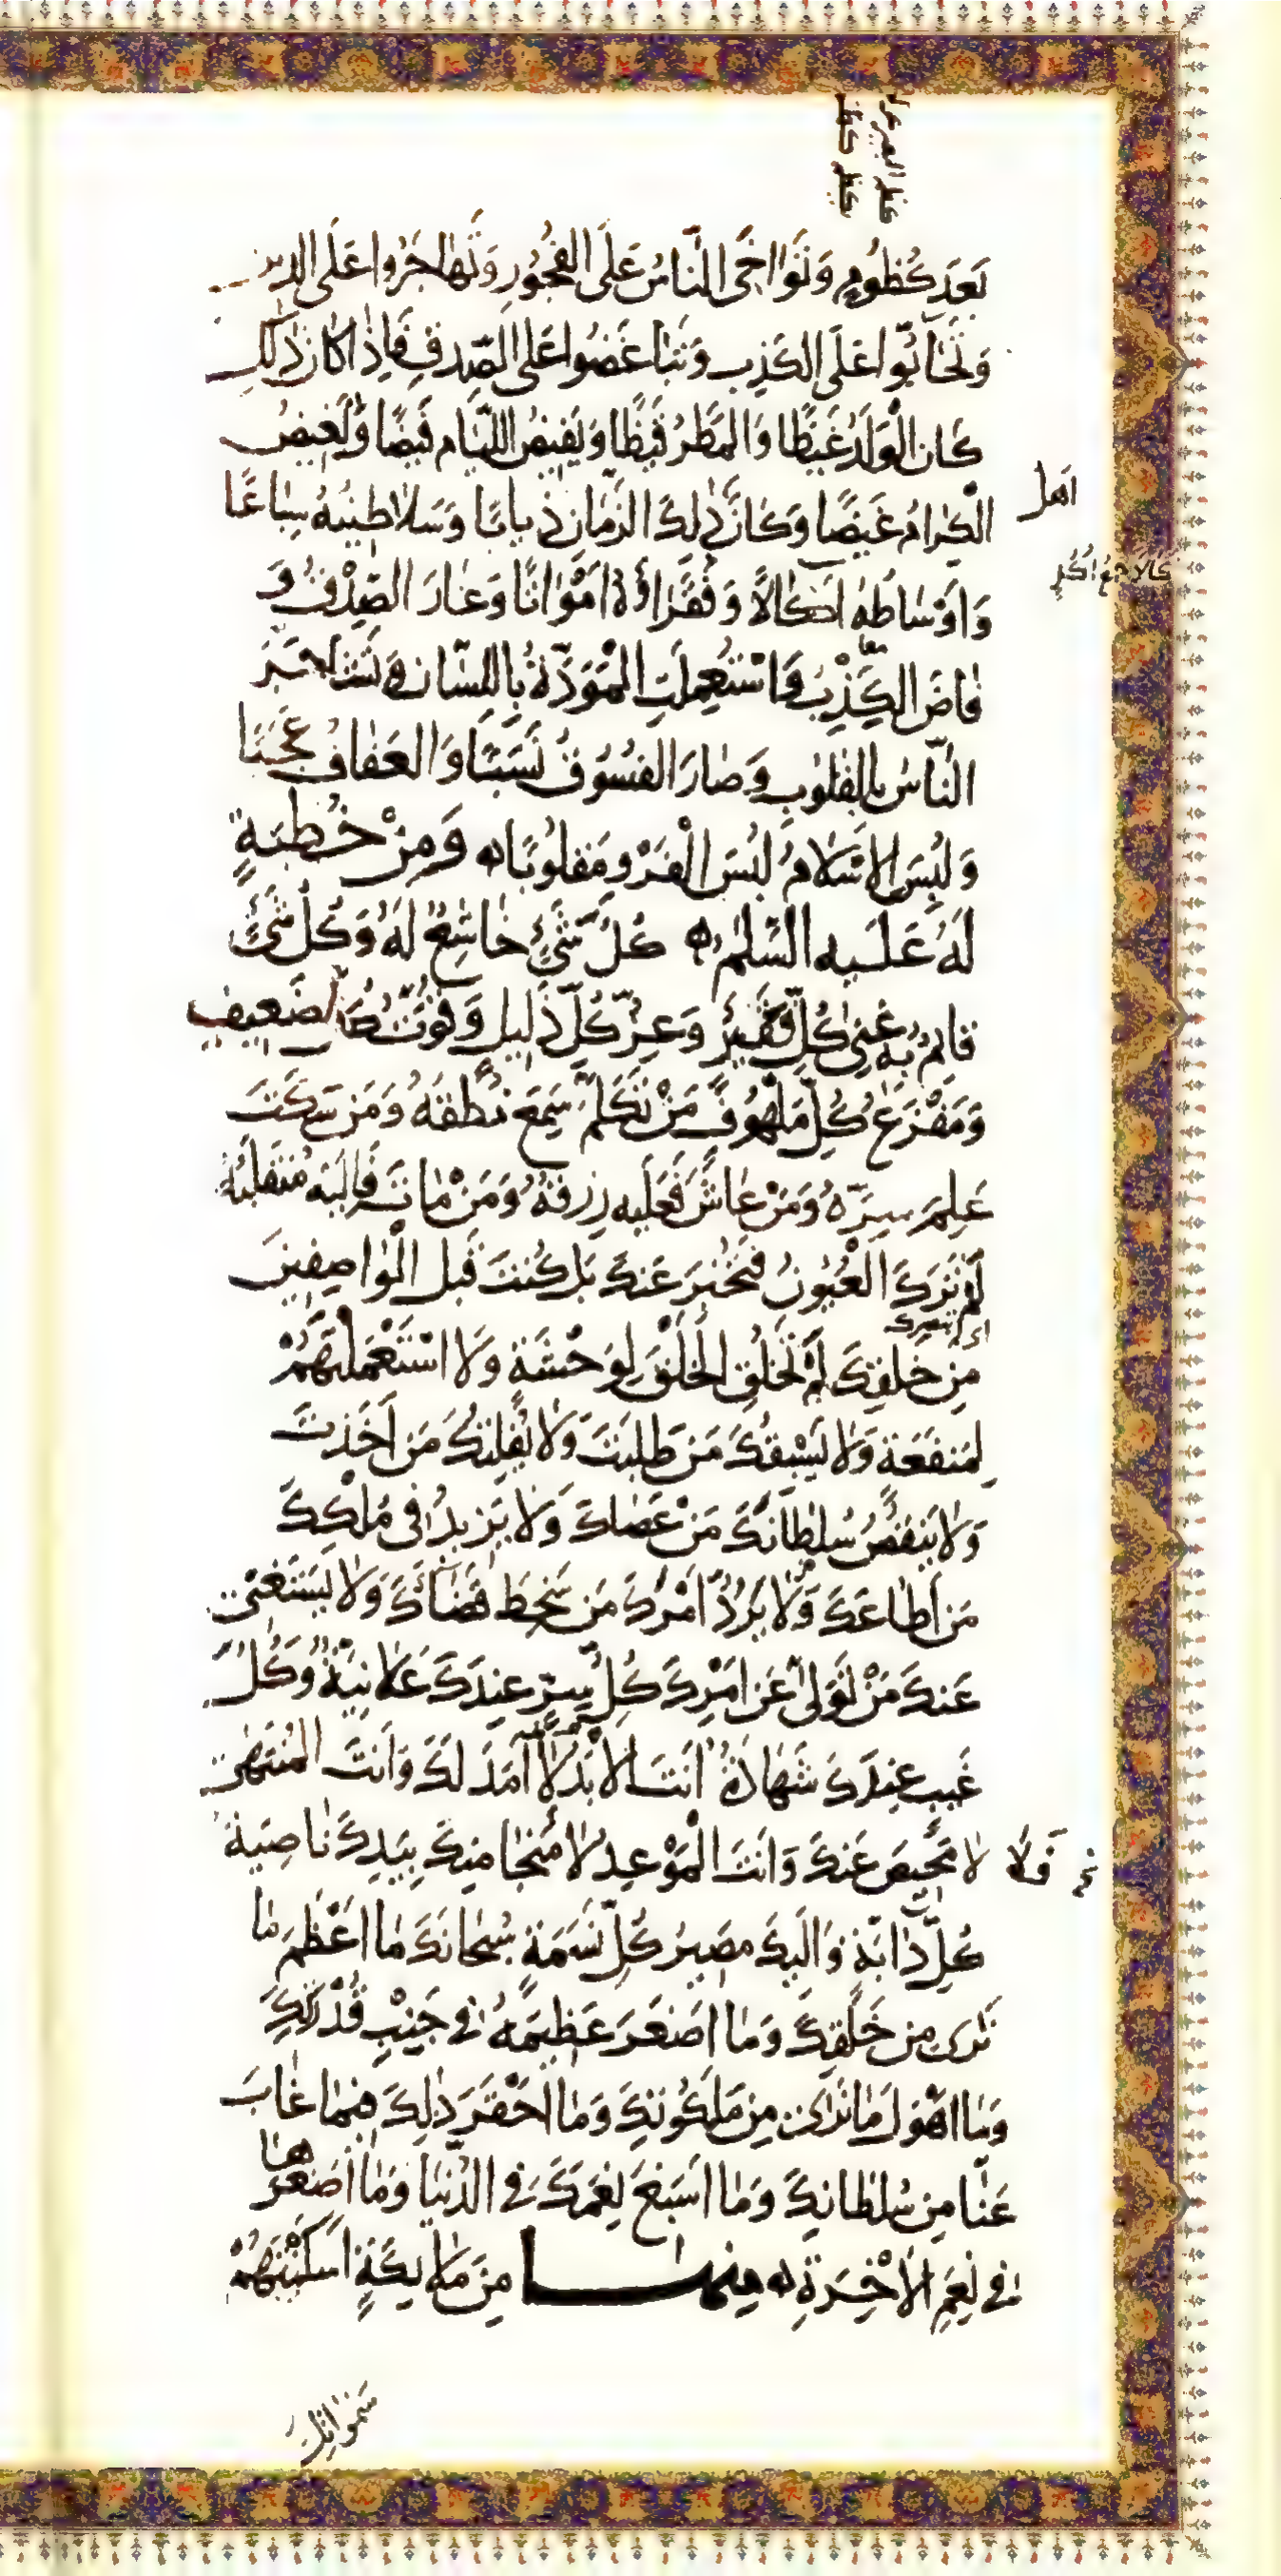 بَعدَ كُظُومٍ وَتَوَاخَى النَّاسُ عَلَى الفُجُورِ وَتَهَاجَرُوا عَلَى الدين
وَتَحَابُّوا عَلَى الكَذِبِ وَتَبَاغَضُوا عَلَى الصِّدقِ فَإِذَا كَانَ ذٰلِكَ
كَانَ الْوَلَدُ غَيظًا وَالمَطَرُ قَيظًا وَيَفيضُ اللِّئَام فَيضًا وَتَغيضُ
اَهل
الْكِرَامُ غَيضًا وَكَانَ ذٰلِكَ الزَّمَانِ ذِيَابًا وَسَلاَطِينُهُ سِبَاعًا
وَاَوْسَاطُهُ اَكَالاً وَفُقَرَاؤُهُ اَمْوَاتًا وَغَارَ الصِّدْقُ وَ
فَاضَ الكِذْبُ وَاسْتُعمِلَتِ الْمَوَدَّةُ بِاللِّسَانِ وَتَشَاجَرَ
النَّاسُ بِالقُلوُبِ وَصَارَ الفُسُوقُ نَسَبًا وَالعَفَافُ عَجَبًا
وَلُبِسَ الاِسْلاَمُ لُبْسَ الْفَرْوِ مَقلوُبًا وَمِنْ خُطبَةٍ
لَهُ عَلَيهِ السَّلٰمُ كُلُّ شَيْءٍ خَاشِعٌ لَهُ وَكُلُّ شَيْءٍ
قَائِمٌ بِهِ غِنىٰ كُلِّ فَقِيرٍ وَعِزُّ كُلِّ ذَلِيلٍ وَقُوَّةُ كُلِّ ضَعِيفٍ
وَمَفْزَعُ كُلِّ مَلْهُوفٍ مَنْ تَكَلَّمَ سَمِعَ نُطقَهُ وَمَن سَكَتَ
عَلِمَ سِرَّهُ وَمَنْ عَاشَ فَعَلَيهِ رِزقُهُ وَمَنْ مَاتَ فَإِلَيهِ مُنقَلَبُهُ
لَمْ تَرَكَ الْعُيُونُ فَتُخْبِرَ عَنكَ بَل كُنتَ قَبلَ الْوَاصِفِينَ
مِن خَلقِكَ لَمْ تَخلُقِ الخَلْقَ لِوَحْشَةٍ وَلاَ اسْتَعْمَلْتَهُمْ
لِمَنفَعَةٍ وَلاَ يَسْبِقُكَ مَن طَلَبتَ وَلاَ يُفلِتُكَ مَن اَخَذتَ
وَلاَ يَنقُصُ سُلطَانَكَ مَنْ عَصَاكَ وَلاَ يَزِيدُ فِي مُلْكِكَ
مَن اَطَاعَكَ وَلاَ يَرُدُّ اَمْرَكَ مَن سَخِطَ قَضَائَكَ وَلاَ يَستَغني
عَنكَ مَنْ تَوَلّىٰ عَن اَمرِكَ كُلُّ سِرٍّ عِندَكَ عَلاَنِيَةٌ وَكُلُّ
غَيبٍ عِندَكَ شَهَادَةٌ اَنتَ الاَبَدُ لاَ اَمَدَ لَكَ وَاَنتَ المُنتَهىٰ
فَلاَ لاَ مَحِيصَ عَنكَ وَاَنتَ الْمَوْعِدُ لاَ مَنجَا مِنكَ بِيَدِكَ نَاصِيَةُ
كُلِّ دَابَّةٍ وَاِلَيكَ مَصِيرُ كُلِّ نَسَمَةٍ سُبحَانَكَ مَا اَعْظَمَ مَا
نَرىٰ مِن خَلقِكَ وَمَا اَصغَرَ عَظِيمَهُ فِي جَنبِ قُدْرَتِكَ
وَمَا اَهْوَلَ مَا نَرىٰ مِن مَلَكُوتِكَ وَمَا اَحْقَرَ ذٰلِكَ فِيمَا غَابَ
عَنَّا مِن سُلطَانِكَ وَمَا اَسبَغَ نِعَمَكَ فِي الدُّنيَا وَمَا اَصغَرَهَا
فِي نِعَمِ الاٰخِرَةِ مِنهَا مِنْ مَلاَئِكَةٍ اَسكَنْتَهُمْ
سَمٰوَاتِكَ